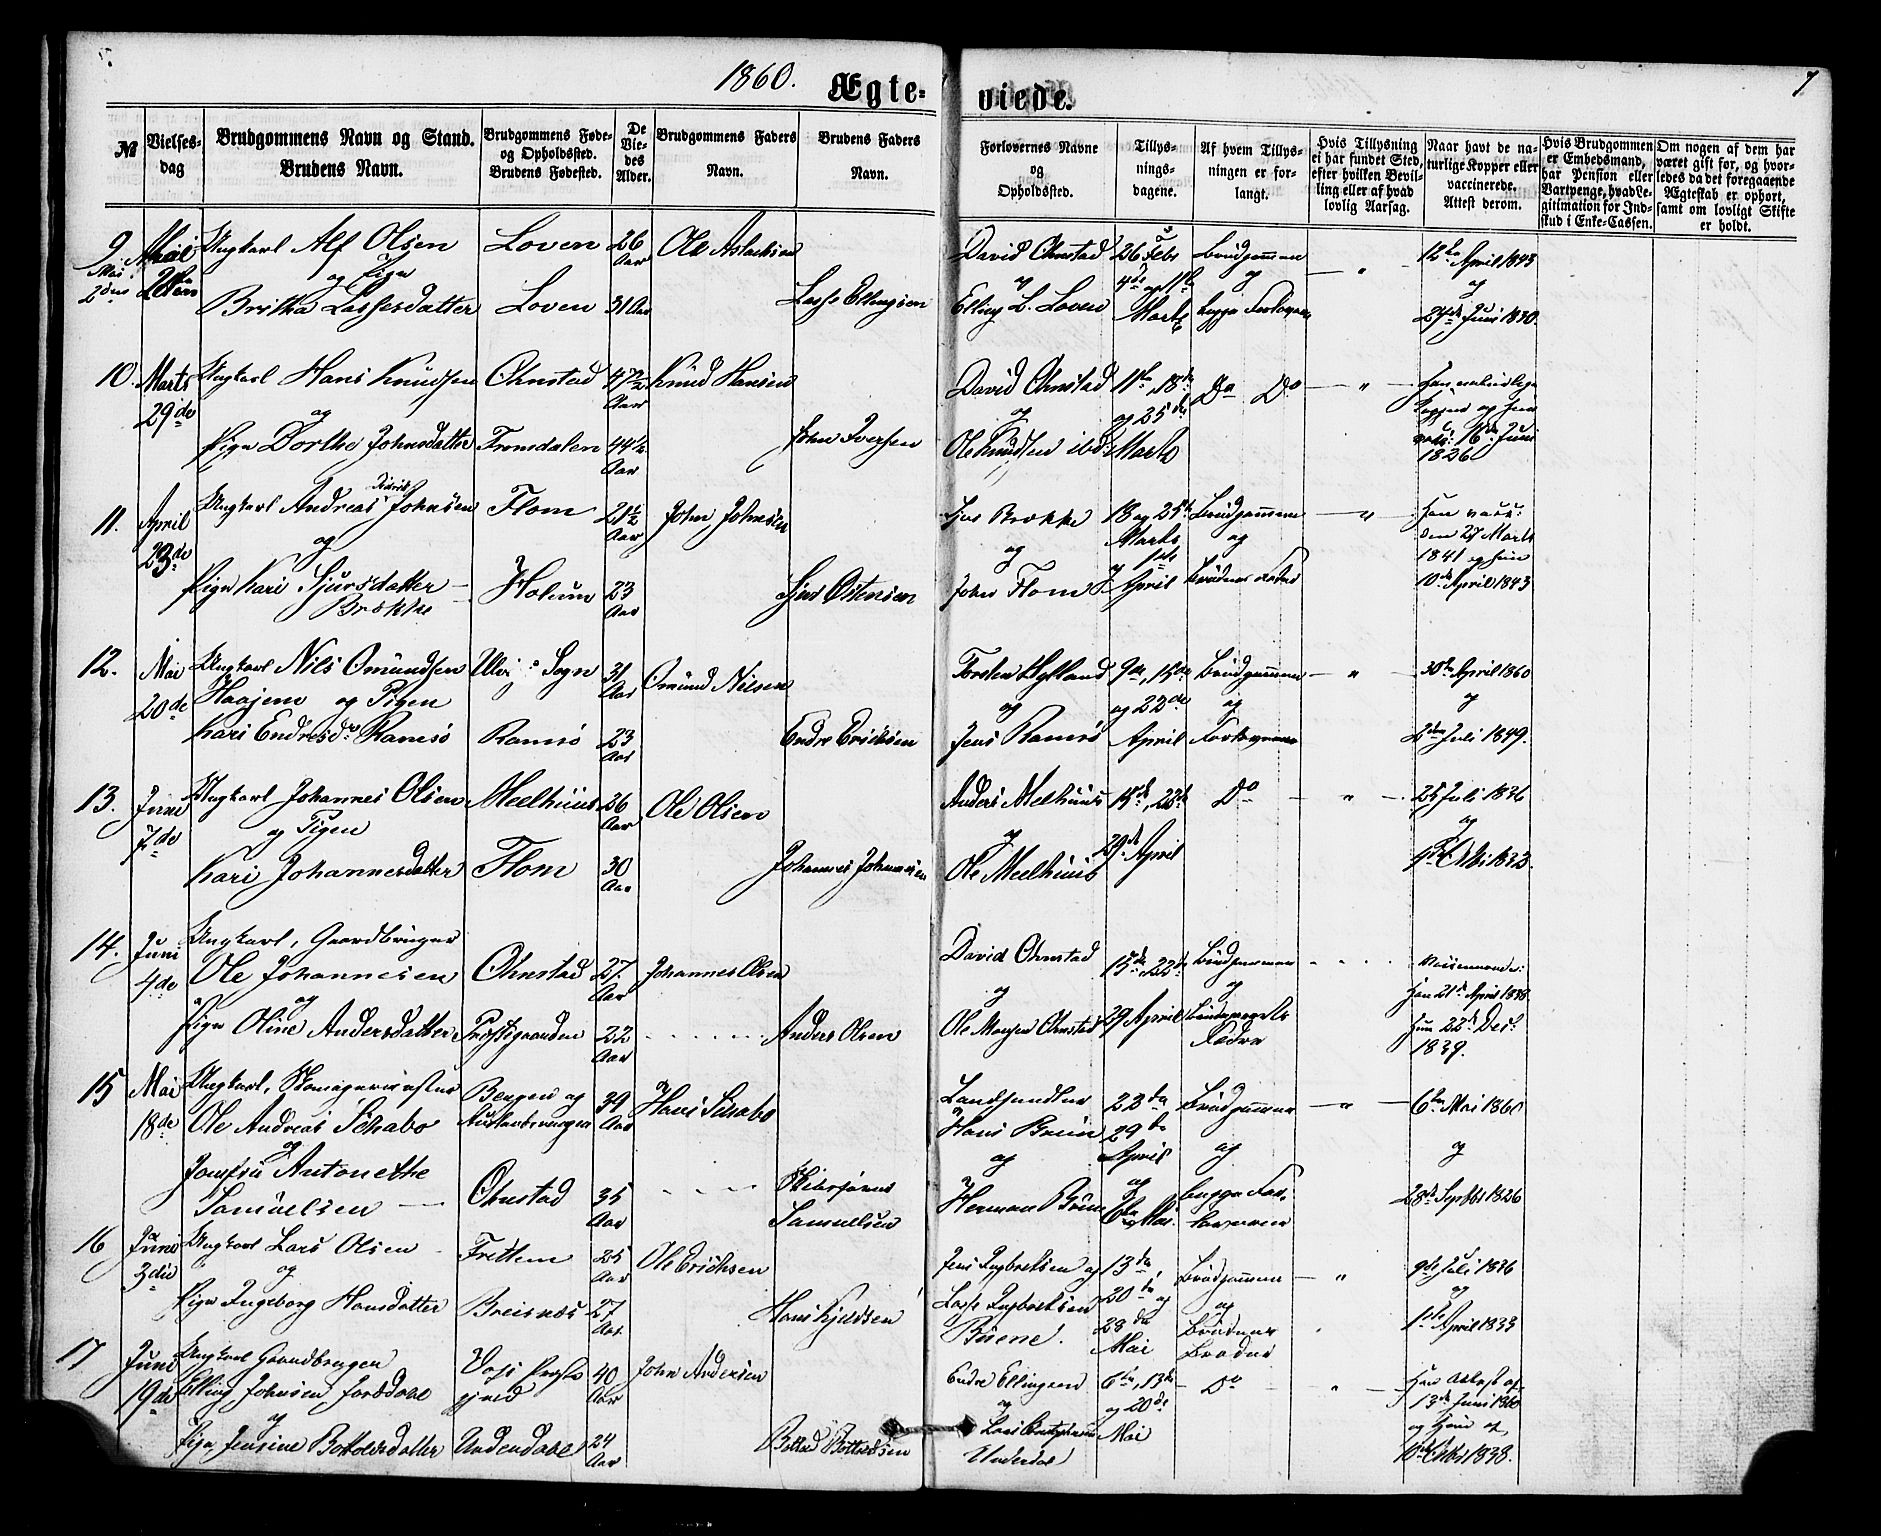 1860. Ægte- viede. 7
№
Vielses-
dag
Brudgommens Navn og Stand.
Brudens Navn.
Brudgommens Føde-
og Opholdssted.
Brudens Fødested.
De
Vie-
des
Alder.
Brudgommens Faders
Navn.
Brudens Faders
Navn.
Forlovernes Navne
og
Opholdssted.
Tillys-
nings-
dagene.
Af hvem Tillys-
ningen er for-
langt.
Hvis Tillysning
ei har fundet Sted,
efter hvilken Bevil-
ling eller af hvad
lovlig Aarsag.
Naar havt de na-
turlige Kopper eller
vaccinerede.
Attest derom.
Hvis Brudgommen
er Embedsmand,
har Pension eller
Vartpenge, hvad Le-
gitimation for Ind-
skud i Enke-Cassen.
Om nogen af dem har
været gift før, og hvor-
ledes da det foregaaende
Ægteskab er ophørt,
samt om lovligt Skifte
er holdt.
9
Mai
2den
Ungkarl Alf Olsen
og Pige
Britha Lassesdatter
Loven
Loven
26
Aar
31 Aar
Ole Aslaksen
Lasse Ellingsen
David Ohnstad
og
Elling L. Loven
26 Feb
4de og 11te
Marts
Brudgommen
og
begge Forlovere
12te April 1843
og
27de Juni 1830.
10.
Marts
29de
Ungkarl Hans Knudsen
og
Pige Dorthe Johnsdatter
Ohnstad
Fronsdalen
47½
Aar
44½
Aar
Knud Hansen
John Iversen
David Ohnstad
og
Ole Knudsen ibd:
11te, 18de
og 25de
Marts
Do Do
Han naturlige
Kopper og hun
vacc: 16de Juni
1826
11.
April
23de
Ungkarl Andreas Didrik Johnsen
og
Pige Kari Sjursdatter
Brække
Flom
Holum
21½
Aar
23
Aar
John Johnsen
Sjur Østensen
Sjur Brække
og
John Flom
18 og 25de
Marts
og 1ste
April
Brudgommen
og
Brudens Fader
Han vacc:
den 27 Marts
1841 og hun
10de April 1843
12.
Mai
20de
Ungkarl Nils Omundsen
Haajem og Pigen
Kari Endresdr Ramsø
Ulvi i Sogn
Ramsø
31
Aar
23
Aar
Omund Nilsen
Endre Eriksen
Torsten Hylland
og
Jens Ramsø
9de, 15de
og 22de
April
Brudgommen
og
Forloverne
30te April 1860
og
2den Juli 1849.
13.
Juni
7de
Ungkarl Johannes Olsen
og Pigen
Kari Johannesdatter
Meelhuus
Flom
26
Aar
30
Aar
Ole Olsen
Johannes Johannesen
Anders Meelhuus
og
Ole Meelhuus
15de, 22de
29de April
Do
25 Juli 1836
og
14.
Juni
4de
Ungkarl, Gaardbruger
Ole Johannesen
og
Pige Oline Andersdatter
Ohnstad
Præstegaarden
27
Aar
22
Aar
Johannes Olsen
Anders Olsen
David Ohnstad
og
Ole Monsen Ohnstad
15de, 22de
29 April
Brudgommen
og
Fader
Han 21de April 1838
Hun 22de Dec.
1839.
15
Mai
18de
Ungkarl, Skomagermester
Ole Andreas Schabo
og
Jomfru Antonette
Samuelsen
Bergen og
Aurlandsvangen
Ohnstad
39
Aar
35
Aar
Hans Schabo
Samuelsen
Landhandler
Hans Bruun
og
Herman Bruun
22de
29de
April
og
6te Mai.
Brudgommen
og
begge For-
loverne
6te Mai 1860
og
28de Septbr 1826
16
Juni
3die
Ungkarl Lars Olsen
og
Pige Ingeborg Hansdatter
Frettem
Breisnæs
25
Aar
27
Aar
Ole Erichsen
Hans Kjeldsen
Jens Ingbretsen og
Lasse Ingbretsen
Buene.
13de,
20de og
28de
Mai
Brudgommen
og
Brudens
Broder
9de Juli 1836
og
1ste April 1833
17
Juni
19de
Ungkarl Gaardbrugen
Elling Johnsen Jorddale
og
Pige Jensine Bottolvsdatter
Vossi Præste
gjeld
Undendale
40
Aar
24
Aar
John Andersen
Endre Ellingsen
og
Underdal
6te, 13de
og 20de
Mai
Do
Han Attest af
13de Juni 1860
og Hun af